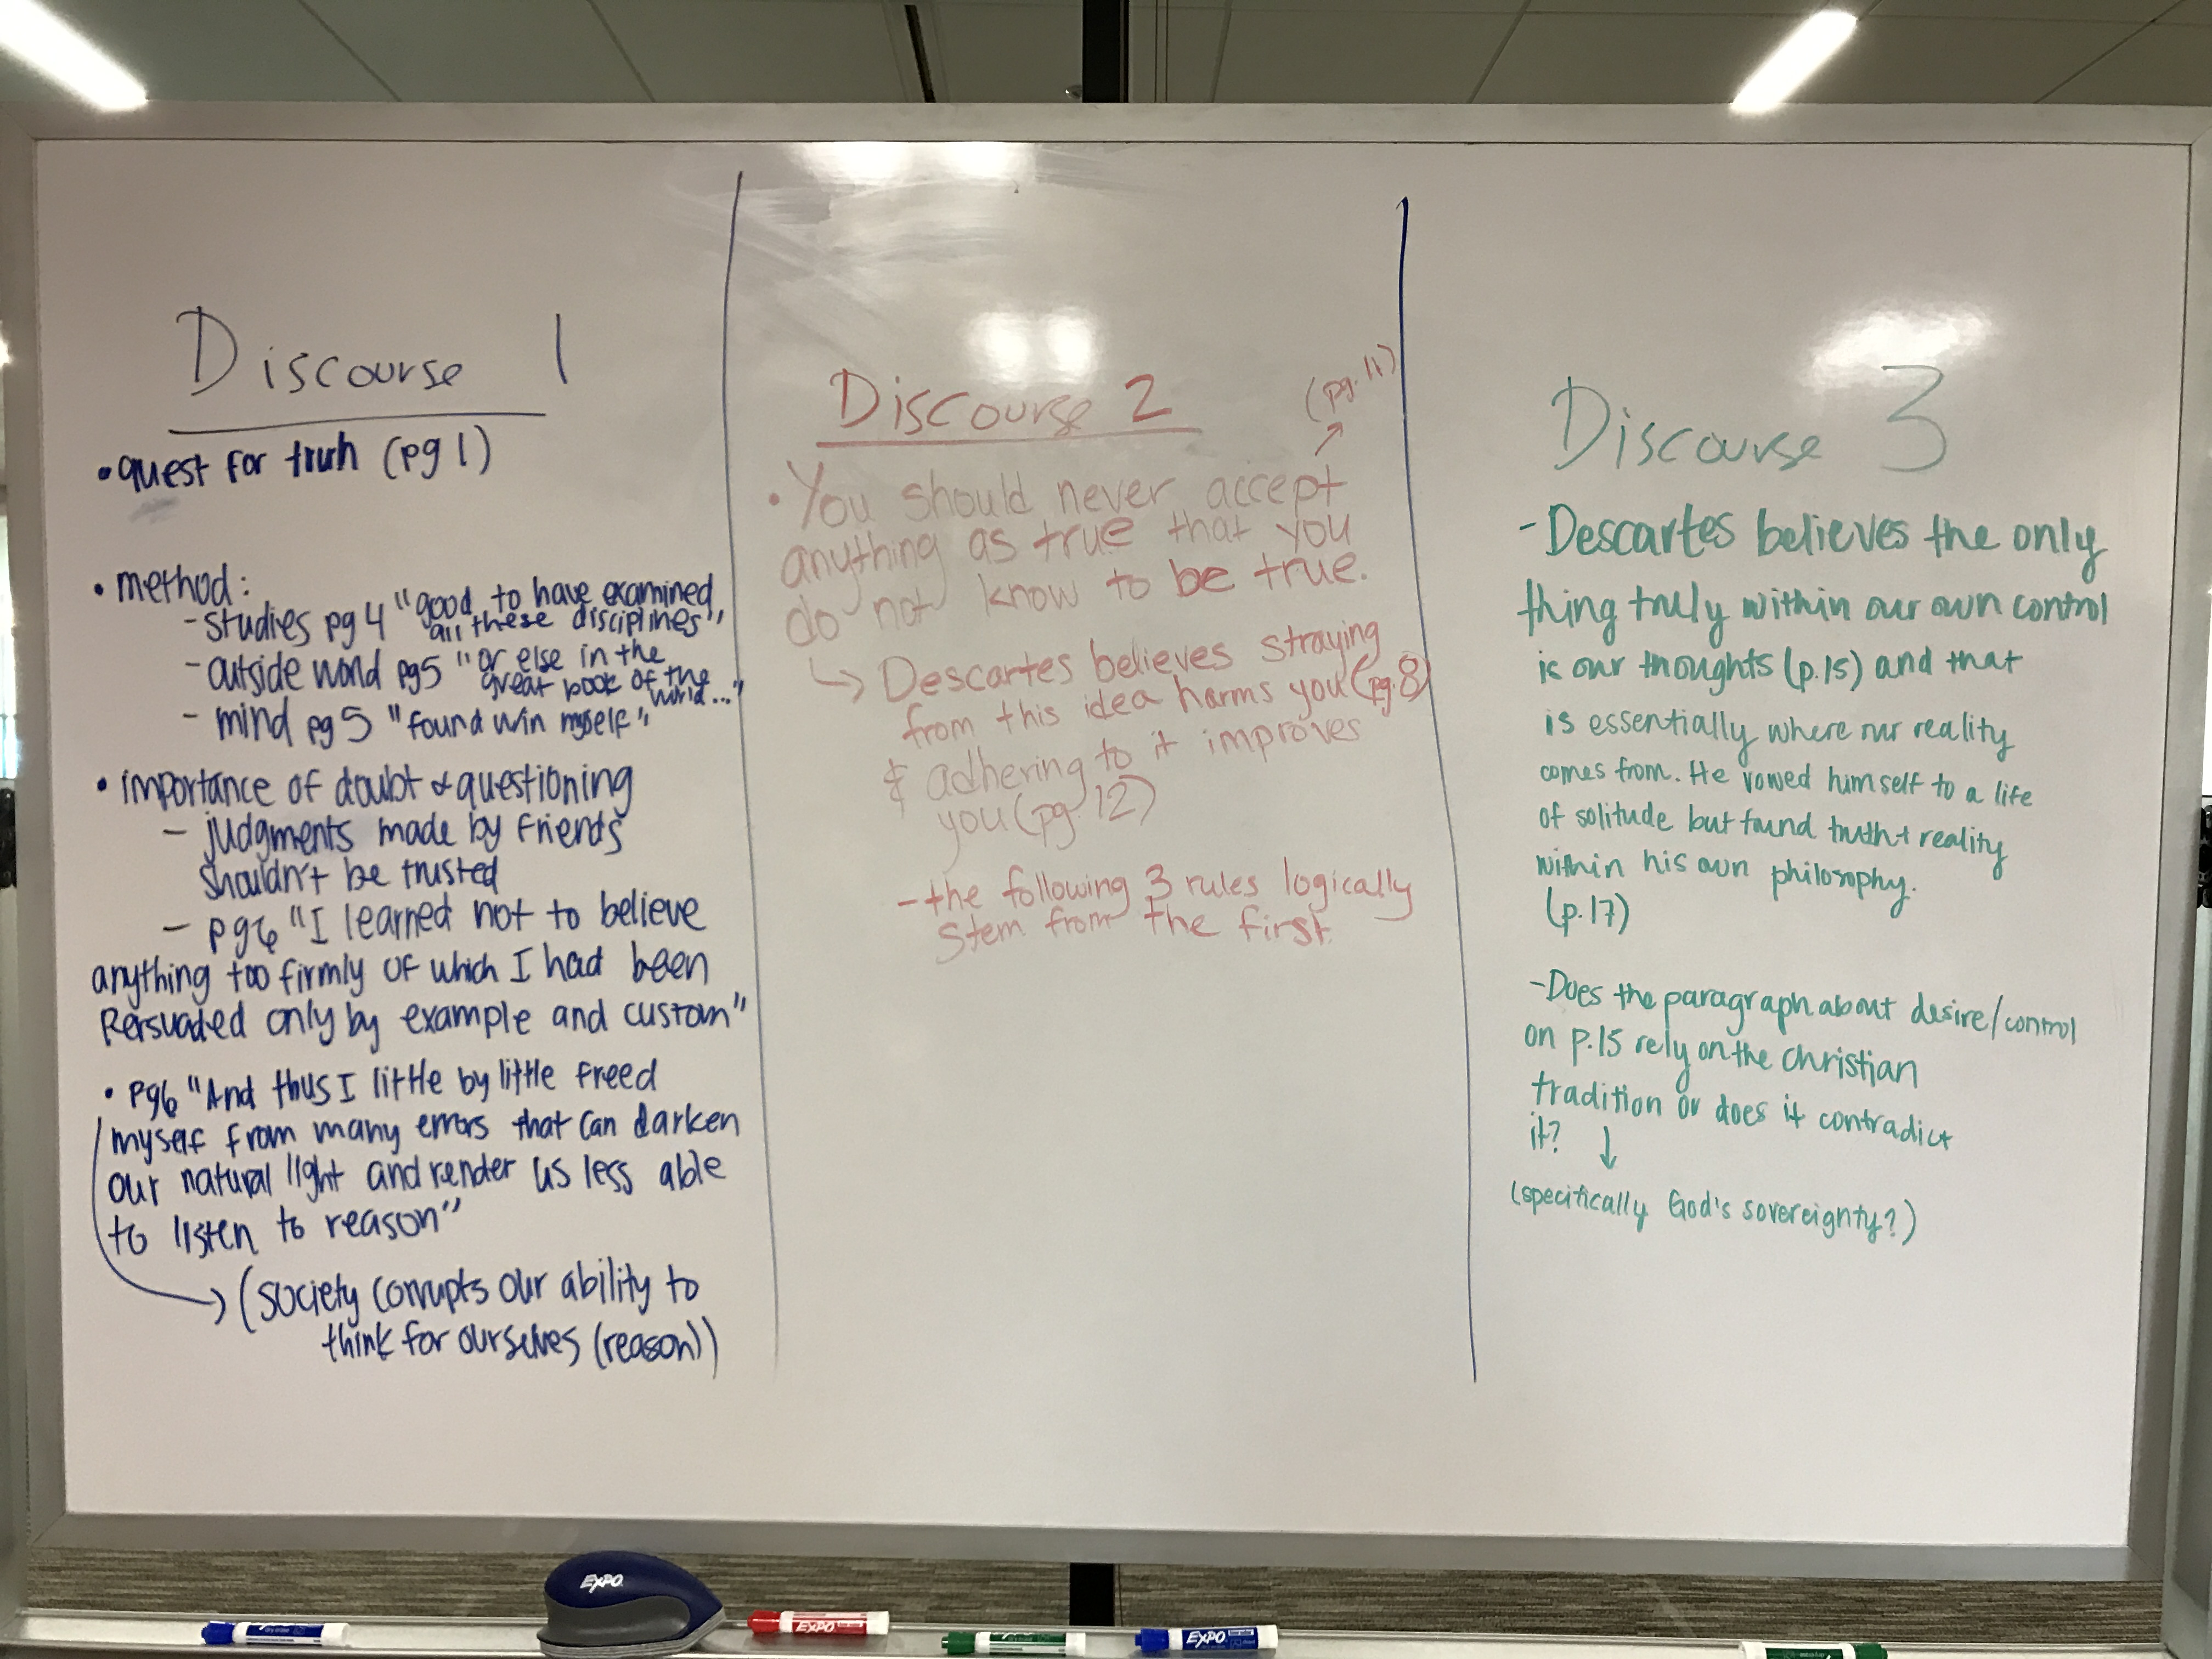 Discourse 1
• quest for truth (pg 1)
• method:
- studies pg 4 "good to have examined
all these disciplines"
- outside world pg5 "or else in the
great book of the
world..."
- mind pg 5 "found w/in myself"
• importance of doubt & questioning
- judgments made by friends
shouldn't be trusted
- pg6 "I learned not to believe
anything too firmly of which I had been
Persuaded only by example and custom"
• pg6 "And thus I little by little freed
myself from many errors that can darken
our natural light and render us less able
to listen to reason"
→ (society corrupts our ability to
think for ourselves (reason))
Discourse 2
(pg. 11)
• You should never accept
anything as true that you
do not know to be true.
↳ Descartes believes straying
from this idea harms you (pg. 8)
& adhering to it improves
you (pg. 12)
- the following 3 rules logically
stem from the first.
Discourse 3
- Descartes believes the only
thing truly within our own control
is our thoughts (p.15) and that
is essentially where our reality
comes from. He vowed himself to a life
of solitude but found truth + reality
within his own philosophy.
(p.17)
- Does the paragraph about desire/control
on p.15 rely on the christian
tradition or does it contradict
it? ↓
(specifically God's sovereignty?)
EXPO
EXPO
EXPO
EXPO